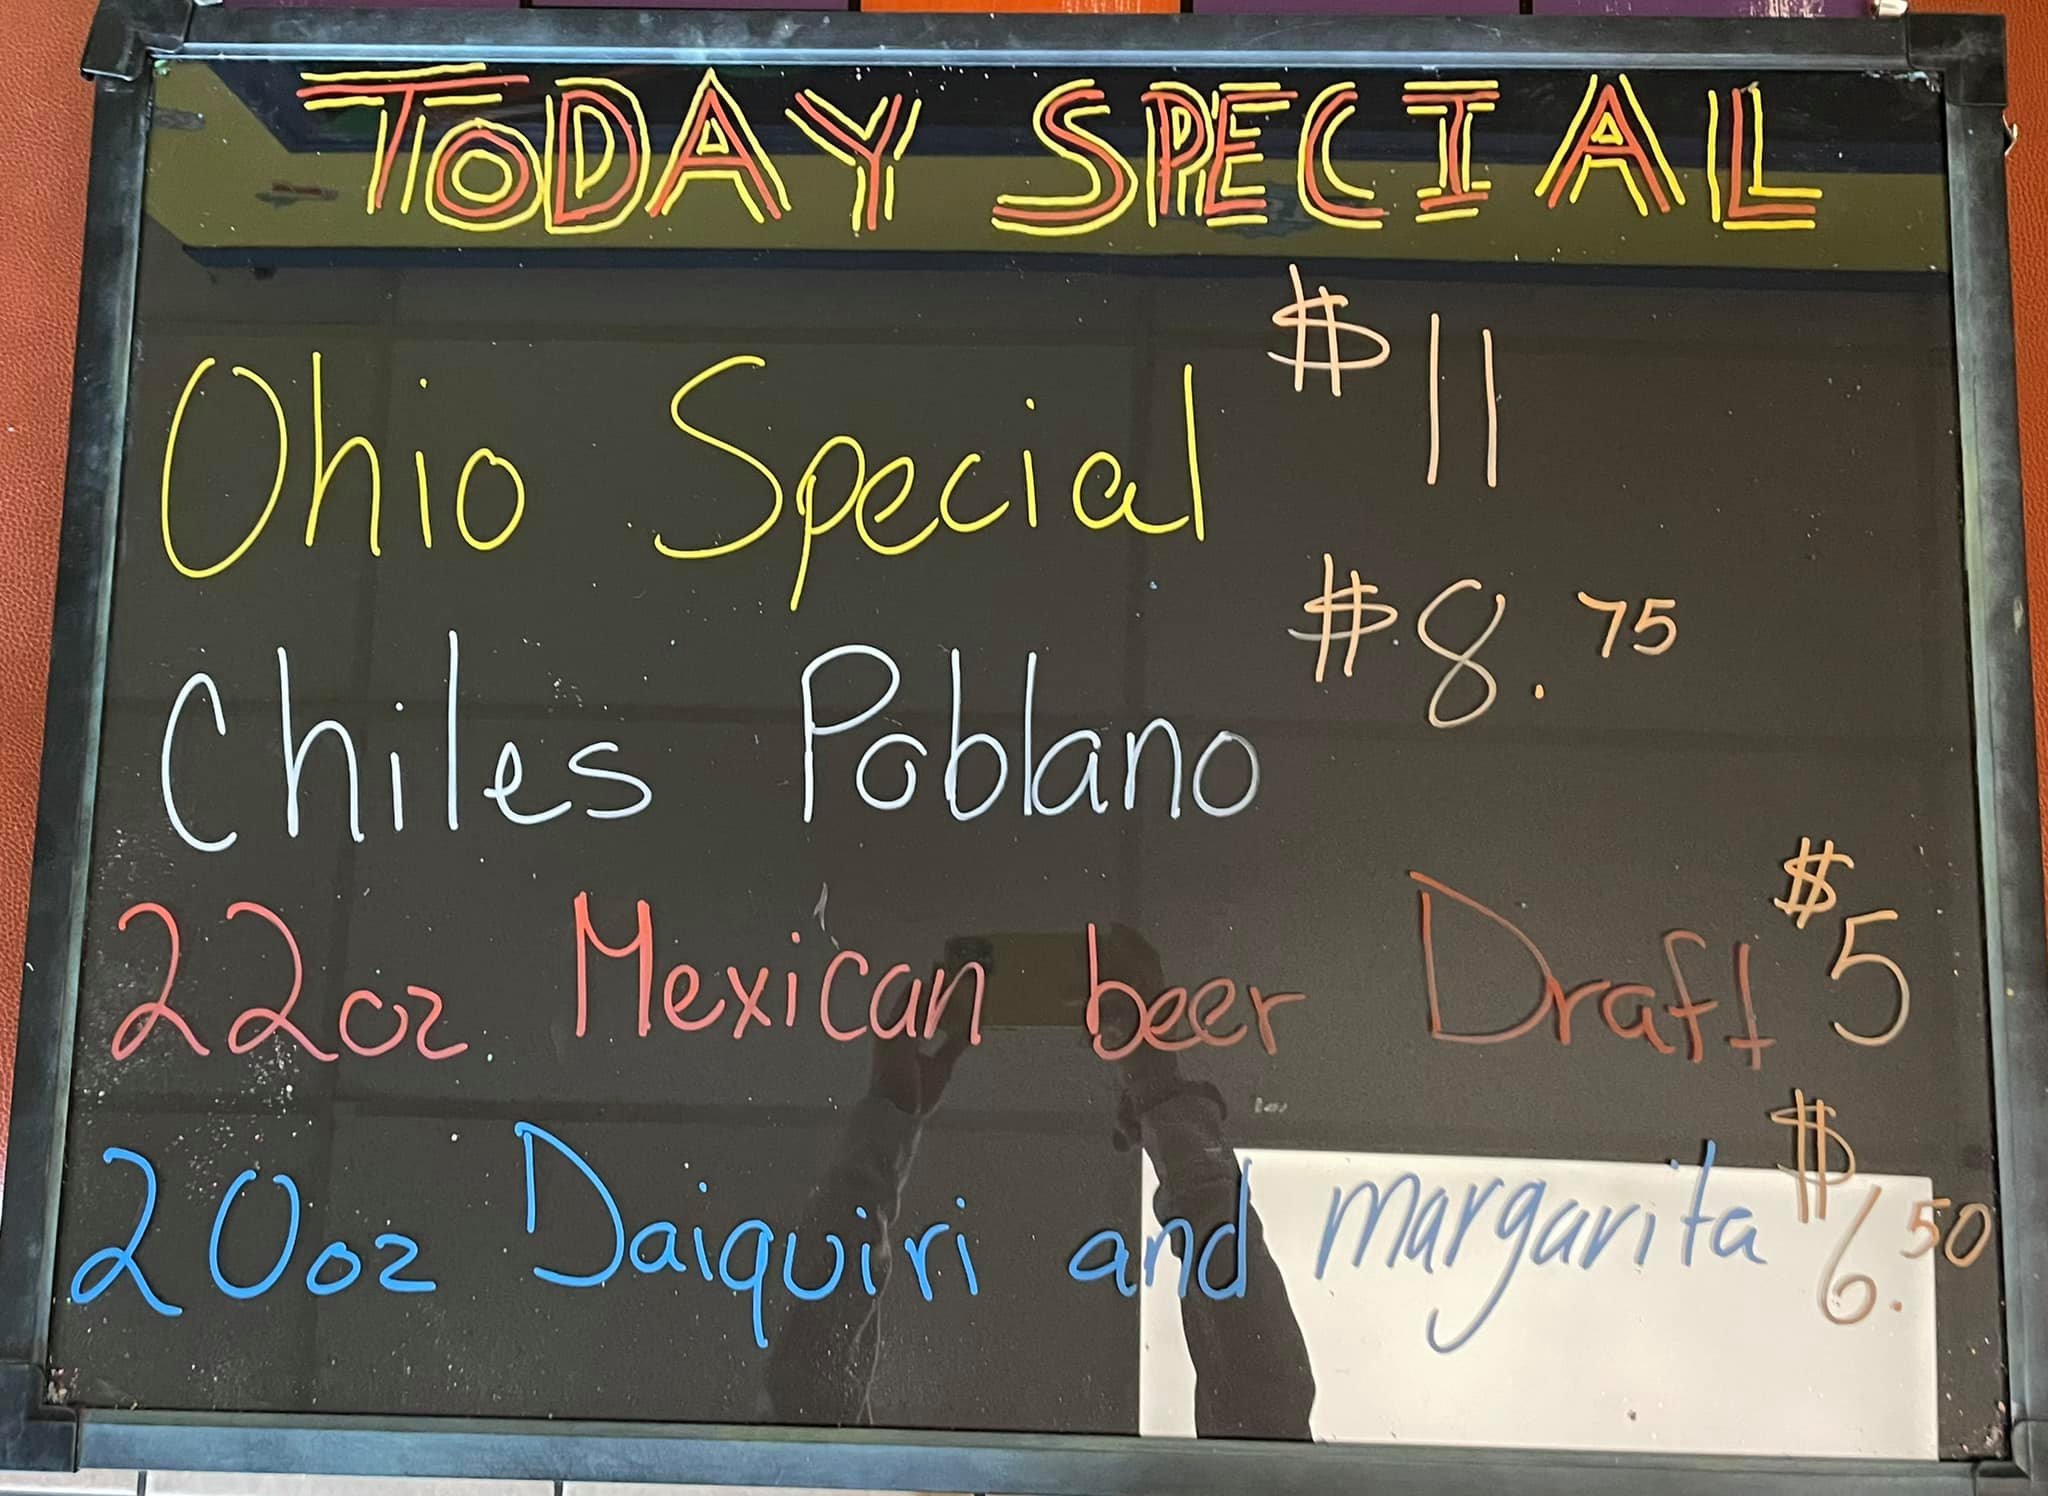 TODAY SPECIAL
Ohio Special $11
Chiles Poblano $8.75
22oz Mexican beer Draft $5
20oz Daiquiri and margarita $6.50